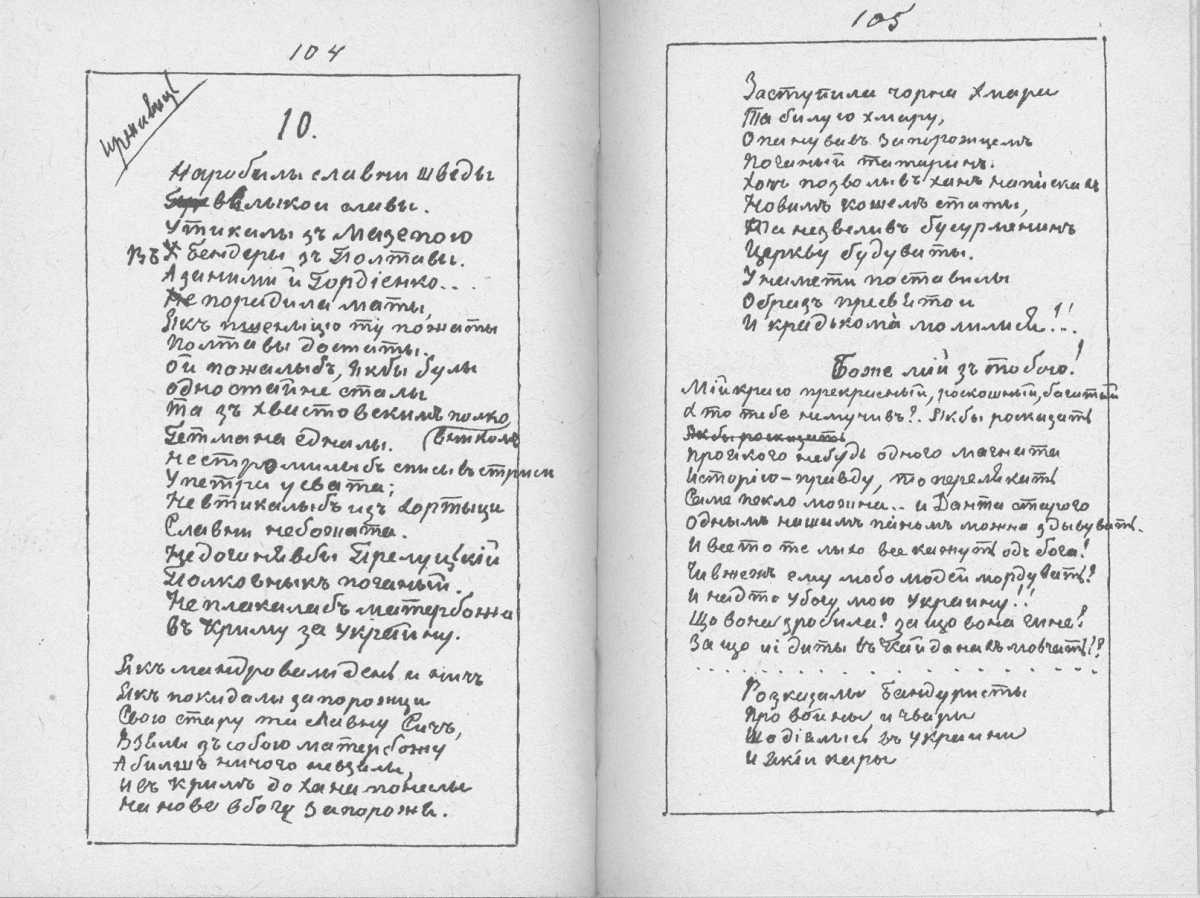 104
иржавиці
10.
Наробылы славни шведы
велыкои славы.
Утикалы зъ Мазепою
Въ Бендеры зъ Полтавы.
А заними й Гордіенко...
Не порадила маты,
Якъ пшеницю ту пожаты
Полтавы достаты.
Ой пожалыбъ, якбы булы
одностайне сталы
Та зъ хвастовскимъ полко
вныкомъ
Гетмана едналы.
Нестромилыбъ списывъ стрыси
У петра у свата;
Невтикалыбъ изъ хортыци
Славни небожата.
Недогонявбы Прелуцкій
Полковныкъ поганый.
Неплакалабъ матербожа
въ Крыму за Украйину.
Якъ мандровали день и ничъ
Якъ покидали запорожци
Свою стару та славну Сичъ,
Взялы зъ собою матербожу
А билшъ ничого невзялы,
И въ Крымъ до хана понеслы
На нове вбогу Запорожье.
105
Заступила чорна хмара
Та билую хмару,
Опанувавъ запорожцемъ
Поганый татаринъ.
Хочъ позволывъ ханъ напіскахъ
Новимъ кошемъ статы,
Та незвеливъ бусурменинъ
Церкву будуваты.
У намети поставилы
Образъ пресвятои
И крадькома молилися!!..
Боже мій зъ тобою!
Мій краю прекрасный, роскошный, багатый
Хто тебе немучивъ?. Якбы росказать
Якбы росказать
Проякого небудь одного магната
Исторію-правду, то перелякать
Саме пекло можна.. и Данта старого
Однымъ нашимъ паномъ можна здывувать.
И все то те лыхо все кажуть одъ бога!
Чи вжежъ ему любо людей мордувать?
И надто убогу мою Украину!!
Що вона зробила? за що вона гине?
За що іі диты въ кайданахъ мовчать!!?
. . . . . . . . . . . . . . . .
Розказалы бандуристы
Про войны и чвары
Що діялысь въ Украини
И якіи кары